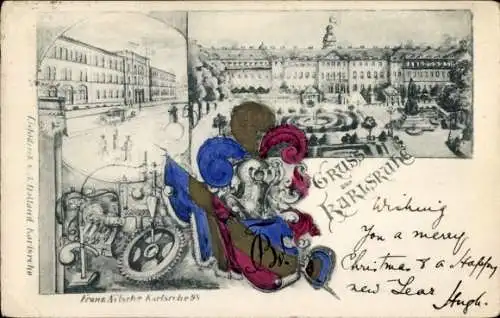 Gruss
aus
Karlsruhe
Wishing
You a merry
Christmas & a Happy
new Year
Hugh.
Franz Nitsche Karlsruhe 98
Karlsruhe